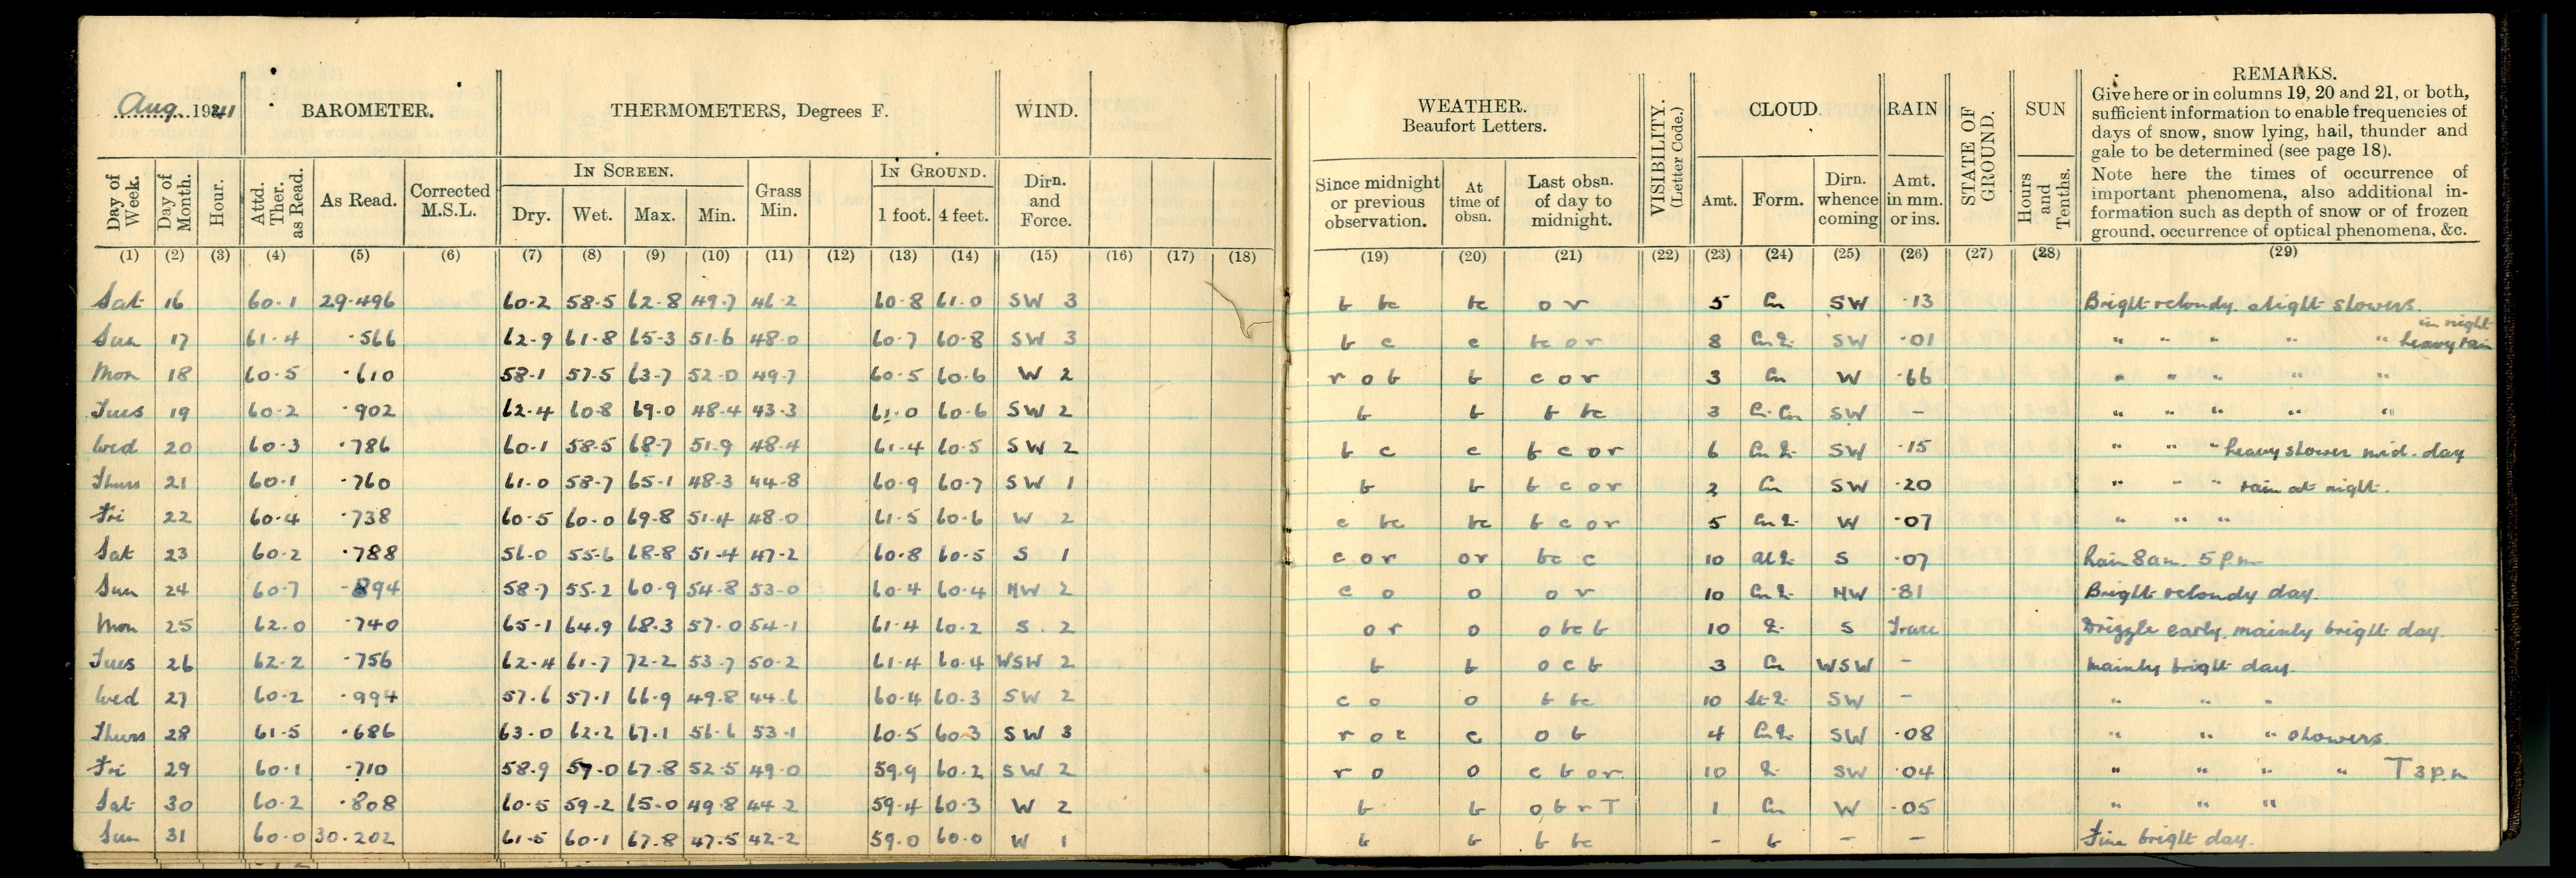 Aug. 1941 BAROMETER. THERMOMETERS, Degrees F. WIND.
Day of Week. Day of Month. Hour. Attd. Ther. as Read. As Read. Corrected M.S.L. IN SCREEN. Dry. Wet. Max. Min. Grass Min. IN GROUND. 1 foot. 4 feet. Dirn. and Force.
(1) (2) (3) (4) (5) (6) (7) (8) (9) (10) (11) (12) (13) (14) (15) (16) (17) (18)
Sat 16 60.1 29.496 60.2 58.5 62.8 49.7 46.2 60.8 61.0 SW 3
Sun 17 61.4 .566 62.9 61.8 65.3 51.6 48.0 60.7 60.8 SW 3
Mon 18 60.5 .610 58.1 57.5 63.7 52.0 49.7 60.5 60.6 W 2
Tues 19 60.2 .902 62.4 60.8 69.0 48.4 43.3 61.0 60.6 SW 2
Wed 20 60.3 .786 60.1 58.5 68.7 51.9 48.4 61.4 60.5 SW 2
Thurs 21 60.1 .760 61.0 58.7 65.1 48.3 44.8 60.9 60.7 SW 1
Fri 22 60.4 .738 60.5 60.0 69.8 51.4 48.0 61.5 60.6 W 2
Sat 23 60.2 .788 56.0 55.6 68.8 51.4 47.2 60.8 60.5 S 1
Sun 24 60.7 .894 58.7 55.2 60.9 54.8 53.0 60.4 60.4 NW 2
Mon 25 62.0 .740 65.1 64.9 68.3 57.0 54.1 61.4 60.2 S. 2
Tues 26 62.2 .756 62.4 61.7 72.2 53.7 50.2 61.4 60.4 WSW 2
Wed 27 60.2 .994 57.6 57.1 66.9 49.8 44.6 60.4 60.3 SW 2
Thurs 28 61.5 .686 63.0 62.2 67.1 56.6 53.1 60.5 60.3 SW 3
Fri 29 60.1 .710 58.9 57.0 67.8 52.5 49.0 59.9 60.2 SW 2
Sat 30 60.2 .808 60.5 59.2 65.0 49.8 44.2 59.4 60.3 W 2
Sun 31 60.0 30.202 61.5 60.1 67.8 47.5 42.2 59.0 60.0 W 1
WEATHER. Beaufort Letters. VISIBILITY. (Letter Code.) CLOUD. RAIN STATE OF GROUND. SUN REMARKS.
Since midnight or previous observation. At time of obsn. Last obsn. of day to midnight. Amt. Form. Dirn. whence coming Amt. in mm. or ins. Hours and Tenths.
Give here or in columns 19, 20 and 21, or both,
sufficient information to enable frequencies of
days of snow, snow lying, hail, thunder and
gale to be determined (see page 18).
Note here the times of occurrence of
important phenomena, also additional in-
formation such as depth of snow or of frozen
ground, occurrence of optical phenomena, &c.
(19) (20) (21) (22) (23) (24) (25) (26) (27) (28) (29)
b bc bc o r 5 Cu SW .13 Bright & cloudy. slight showers.
b c c bc o r 8 SW .01 " " " " " heavy rain in night
r o b b c o r 3 Cu W .66 " " " " "
b b b bc 3 Ci-Cu SW - " " " " "
b c c b c o r 6 SW .15 " " " heavy shower mid-day
b b b c o r 2 Cu SW .20 " " " rain at night.
c bc bc b c o r 5 W .07 " " "
c o r o r bc c 10 S .07 Rain 8 am. 5 p.m.
c o o o r 10 NW .81 Bright & cloudy day.
o r o o bc b 10 S Trace Drizzle early. mainly bright day.
b b o c b 3 Cu WSW - Mainly bright day.
c o o b bc 10 SW - " " "
r o c c o b 4 SW .08 " " " showers.
r o o c b o r 10 SW .04 " " " " T 3 p.m
b b o b r T 1 Cu W .05 " " "
b b b bc - b - - Fine bright day.